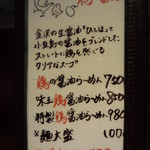 金沢の生醤油"ひしほ"と
小豆島の醤油をブレンドした
ストレートに鶏を感じる
クリアなスープ
鶏の醤油らーめん 750
味玉鶏醤油らーめん 850
特製鶏醤油らーめん 980
麺大盛 100